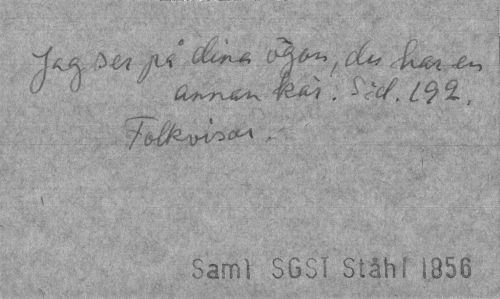 Jag ser på dina ögon, du har en
annan kär. Sid. 192.
Folkvisor.
Saml SGST Ståhl 1856